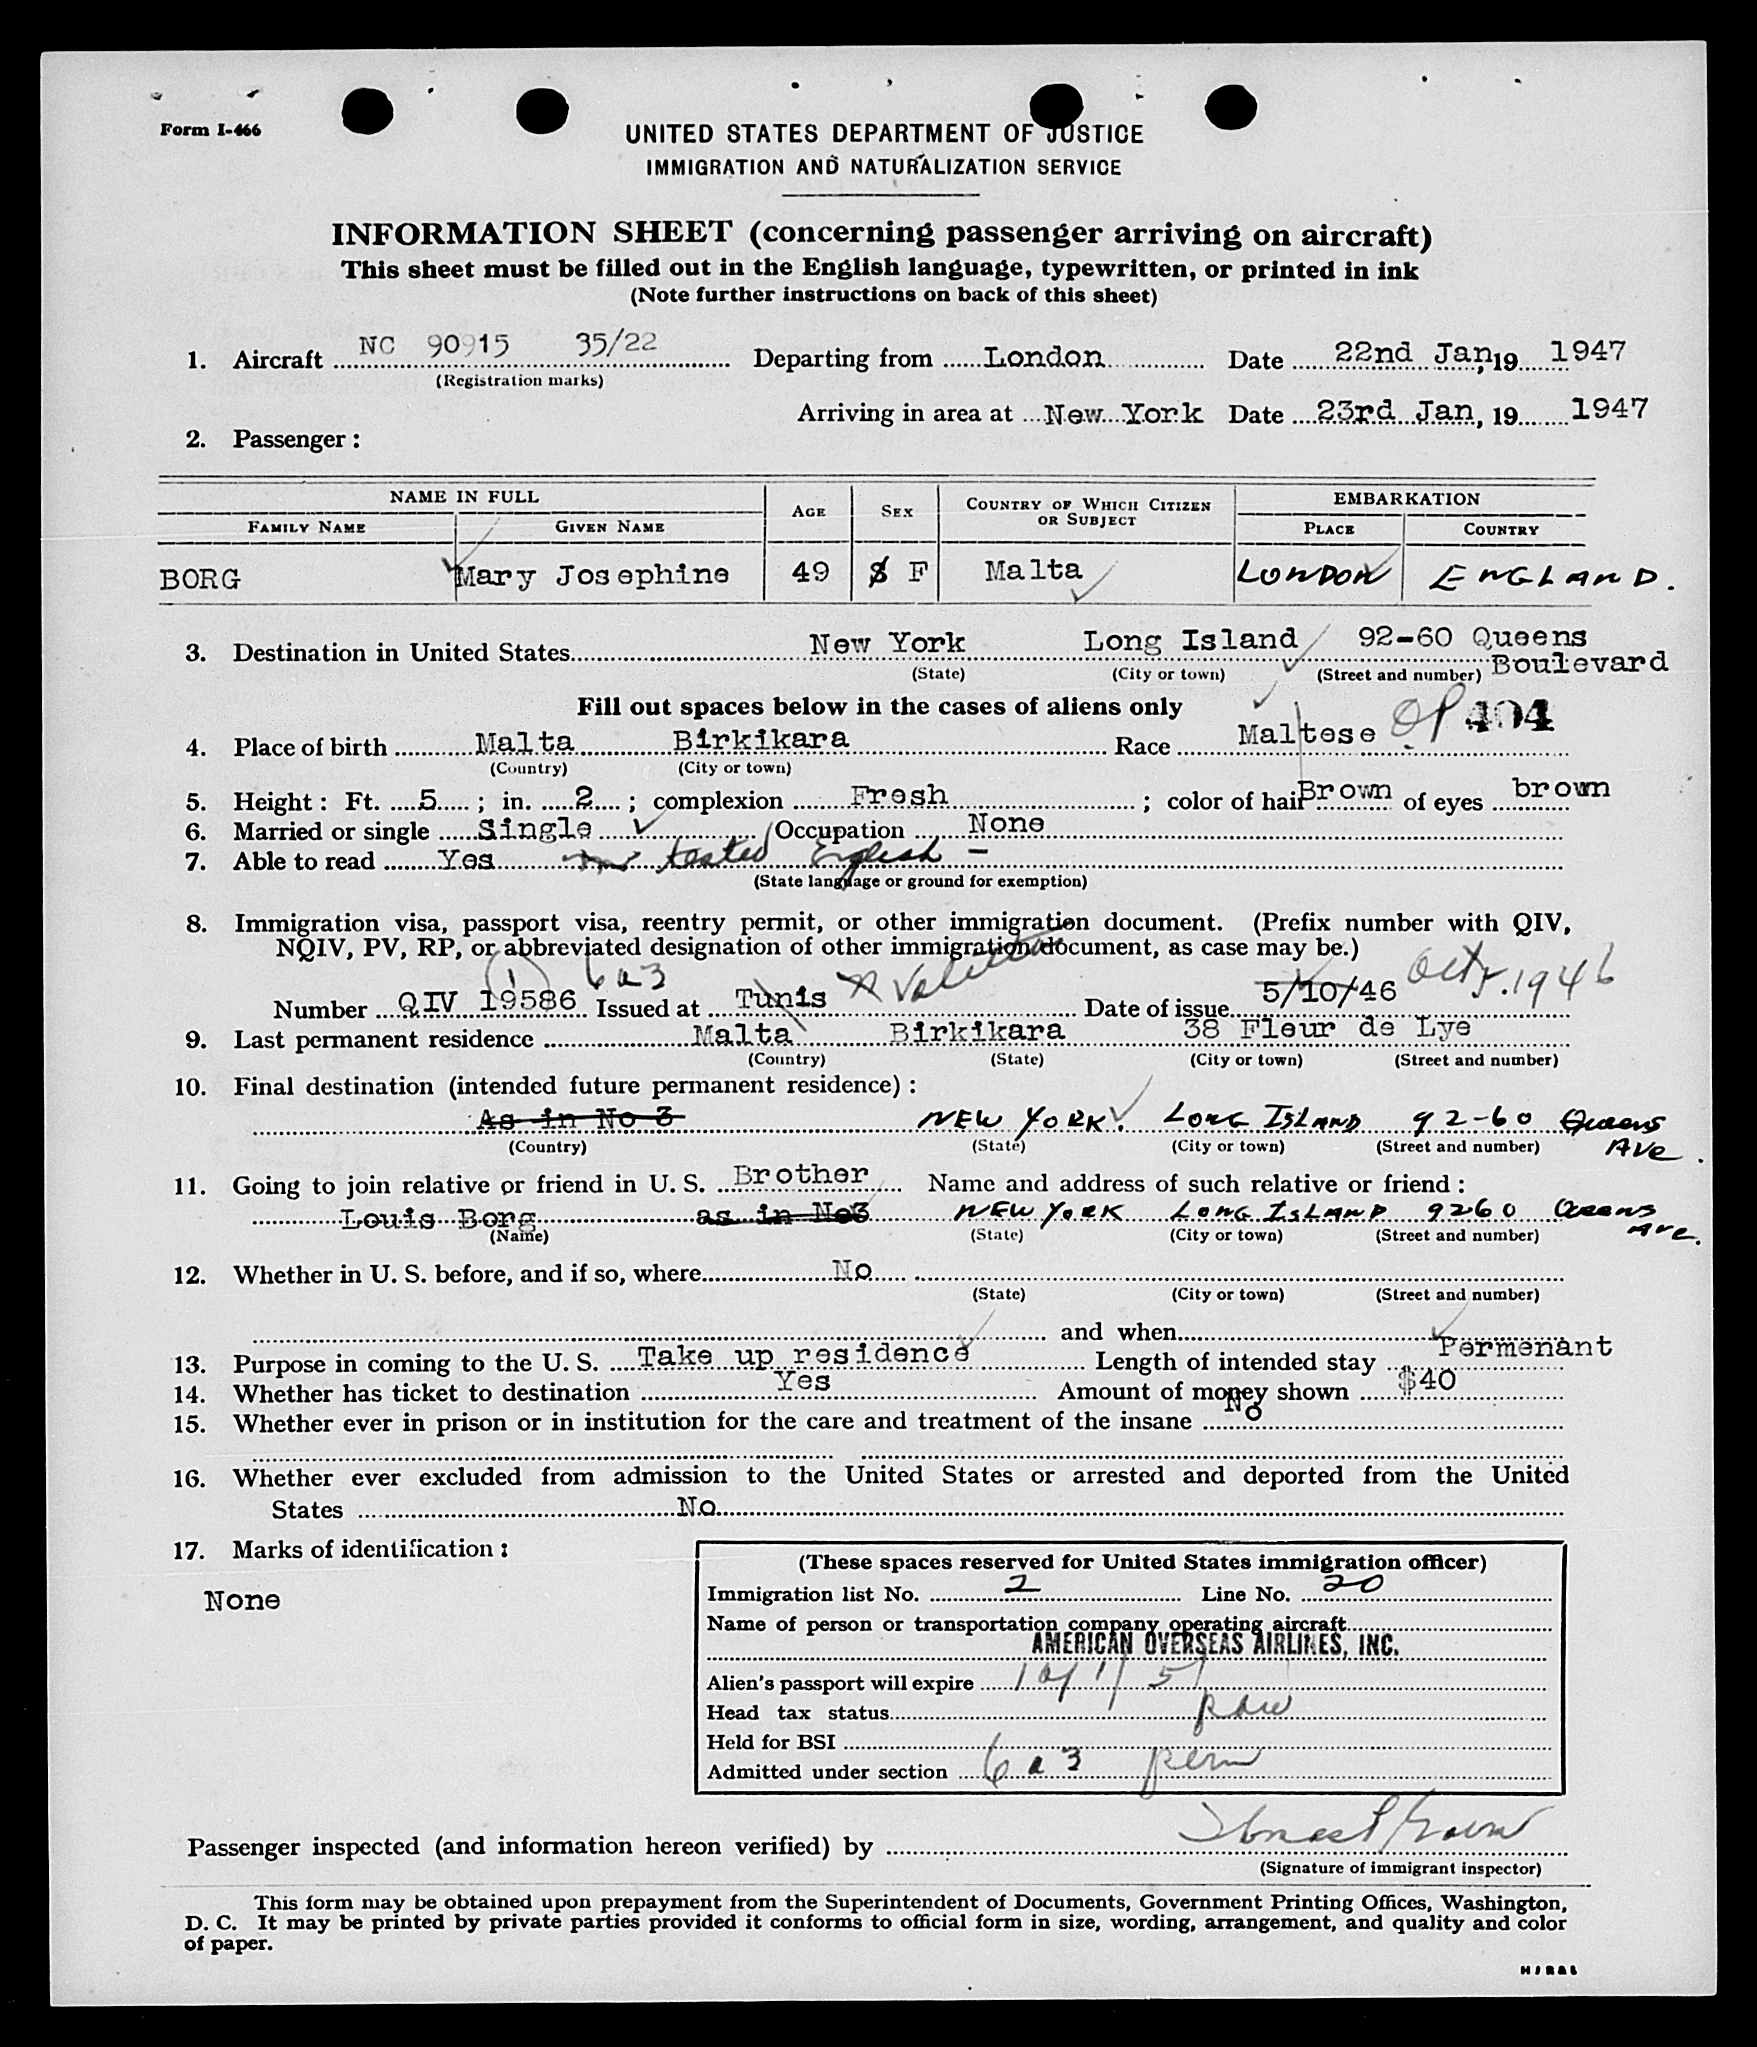 Form I-466
UNITED STATES DEPARTMENT OF JUSTICE
IMMIGRATION AND NATURALIZATION SERVICE
INFORMATION SHEET (concerning passenger arriving on aircraft)
This sheet must be filled out in the English language, typewritten, or printed in ink
(Note further instructions on back of this sheet)
1. Aircraft NC 90915 35/22 Departing from London Date 22nd Jan, 19 1947
(Registration marks)
Arriving in area at New York Date 23rd Jan, 19 1947
2. Passenger:
NAME IN FULL AGE SEX COUNTRY OF WHICH CITIZEN OR SUBJECT EMBARKATION
FAMILY NAME GIVEN NAME PLACE COUNTRY
BORG Mary Josephine 49 F Malta LONDON ENGLAND.
3. Destination in United States New York Long Island 92-60 Queens Boulevard
(State) (City or town) (Street and number)
Fill out spaces below in the cases of aliens only
404
4. Place of birth Malta Birkikara Race Maltese
(Country) (City or town)
5. Height: Ft. 5; in. 2; complexion Fresh; color of hair Brown of eyes brown
6. Married or single Single Occupation None
7. Able to read Yes tested English -
(State language or ground for exemption)
8. Immigration visa, passport visa, reentry permit, or other immigration document. (Prefix number with QIV,
NQIV, PV, RP, or abbreviated designation of other immigration document, as case may be.)
(1) 6a3
Number QIV 19586 Issued at Tunis Valletta Date of issue 5/10/46 Oct 5. 1946
9. Last permanent residence Malta Birkikara 38 Fleur de Lye
(Country) (State) (City or town) (Street and number)
10. Final destination (intended future permanent residence):
As in No 3 NEW YORK. LONG ISLAND 92-60 Queens Ave.
(Country) (State) (City or town) (Street and number)
11. Going to join relative or friend in U. S. Brother Name and address of such relative or friend:
Louis Borg as in No3 NEW YORK LONG ISLAND 9260 Queens Ave.
(Name) (State) (City or town) (Street and number)
12. Whether in U. S. before, and if so, where No
(State) (City or town) (Street and number)
and when
13. Purpose in coming to the U. S. Take up residence Length of intended stay Permenant
14. Whether has ticket to destination Yes Amount of money shown $40
15. Whether ever in prison or in institution for the care and treatment of the insane No
16. Whether ever excluded from admission to the United States or arrested and deported from the United
States No
17. Marks of identification:
None
(These spaces reserved for United States immigration officer)
Immigration list No. 2 Line No. 20
Name of person or transportation company operating aircraft
AMERICAN OVERSEAS AIRLINES, INC.
Alien's passport will expire
Head tax status
Held for BSI
Admitted under section 6 a 3 perm
Passenger inspected (and information hereon verified) by
(Signature of immigrant inspector)
This form may be obtained upon prepayment from the Superintendent of Documents, Government Printing Offices, Washington,
D. C. It may be printed by private parties provided it conforms to official form in size, wording, arrangement, and quality and color
of paper.